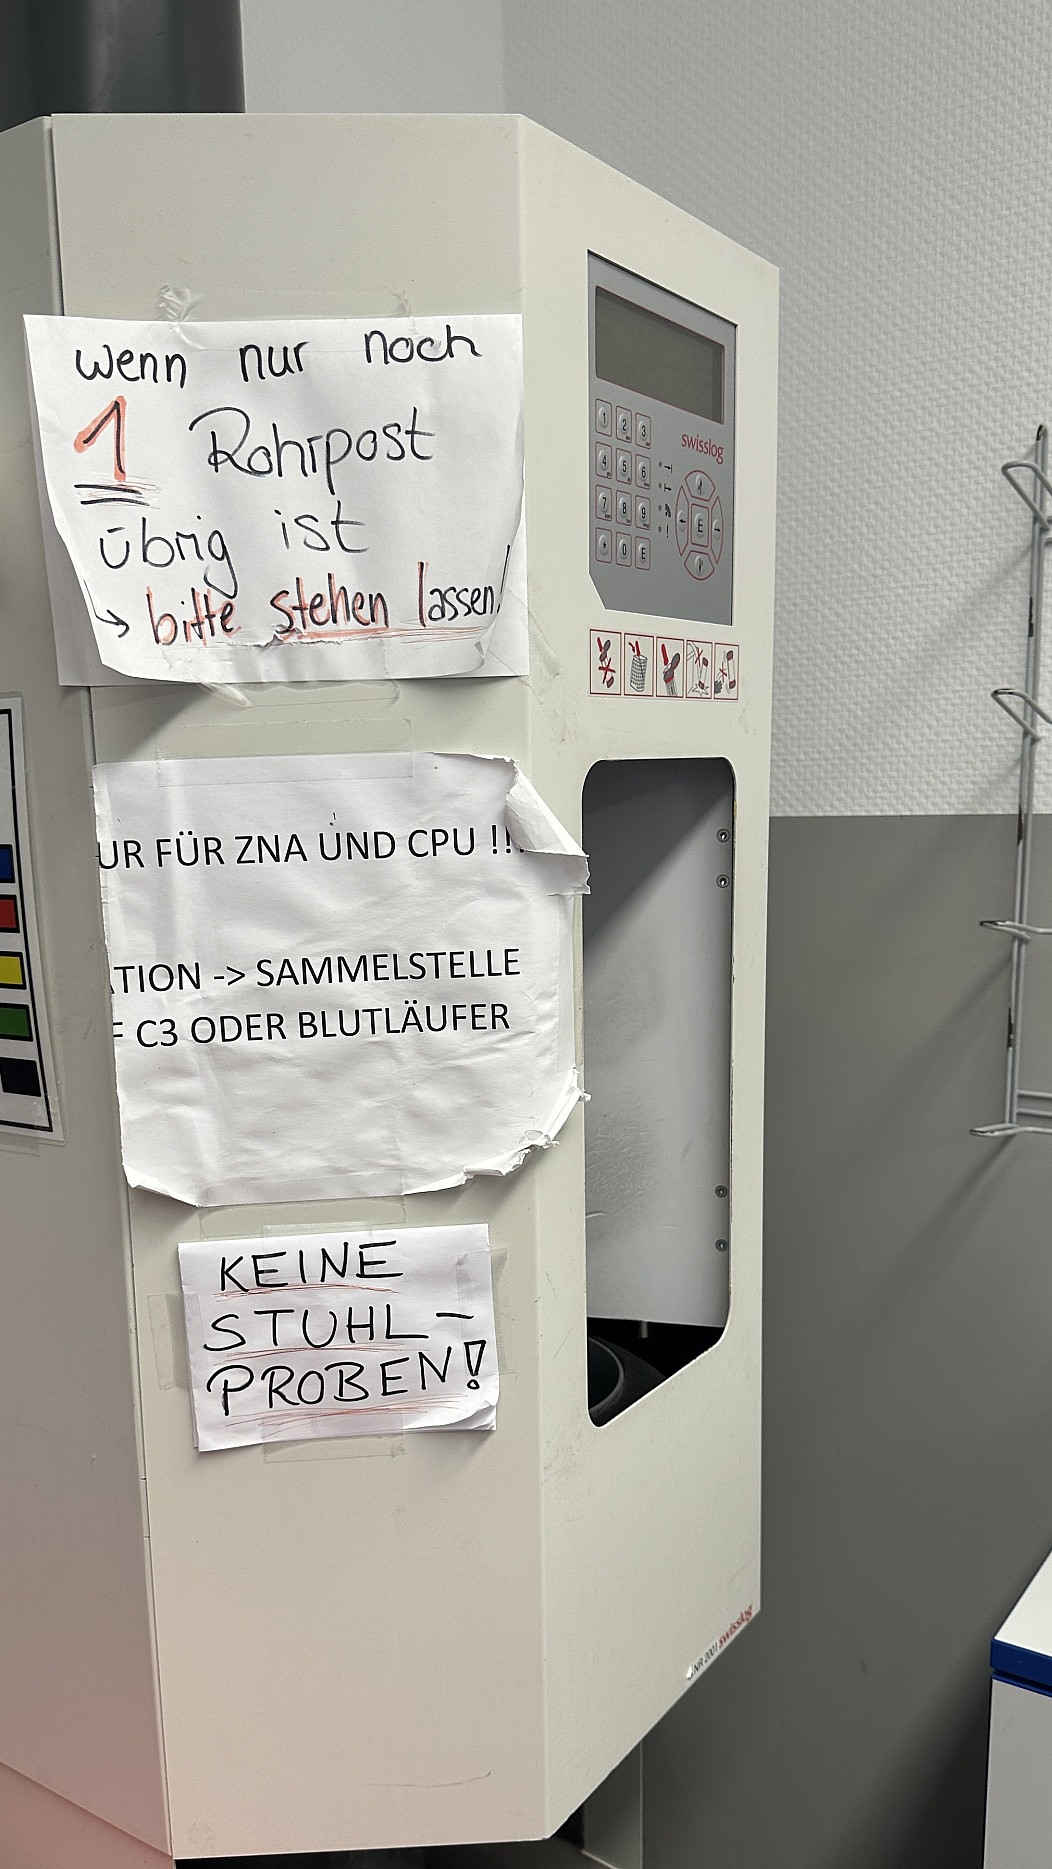 wenn nur noch
1 Rohrpost
übrig ist
→ bitte stehen lassen!
UR FÜR ZNA UND CPU !!!
TION -> SAMMELSTELLE
C3 ODER BLUTLÄUFER
KEINE
STUHL-
PROBEN!
swisslog
1 2 3
4 5 6
7 8 9
* 0 E
E
swisslog